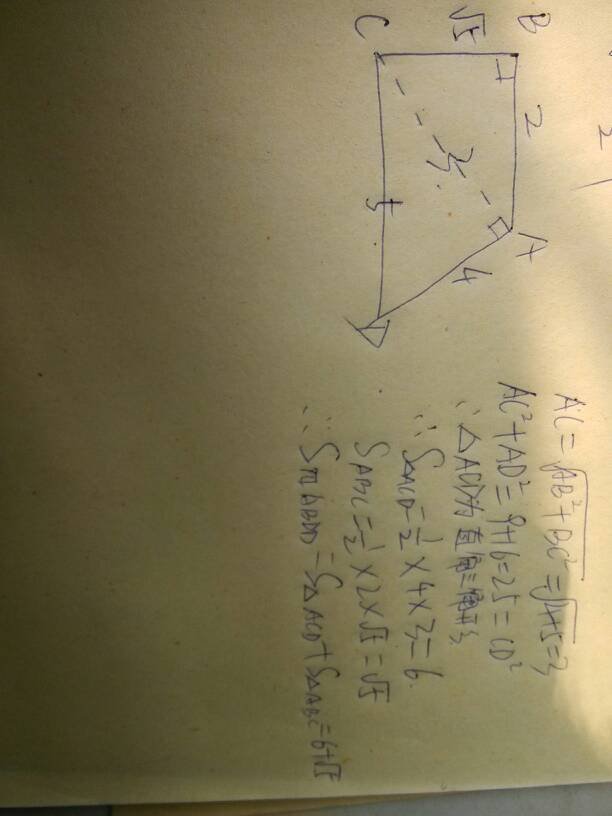 B
2
A
√5
3
4
C
5
D
2
AC=√AB²+BC²=√4+5=3
AC²+AD²=9+16=25=CD²
∴△ACD为直角三角形
∴S△ACD=1/2×4×3=6
SABC=1/2×2×√5=√5
∴S四ABCD=S△ACD+S△ABC=6+√5